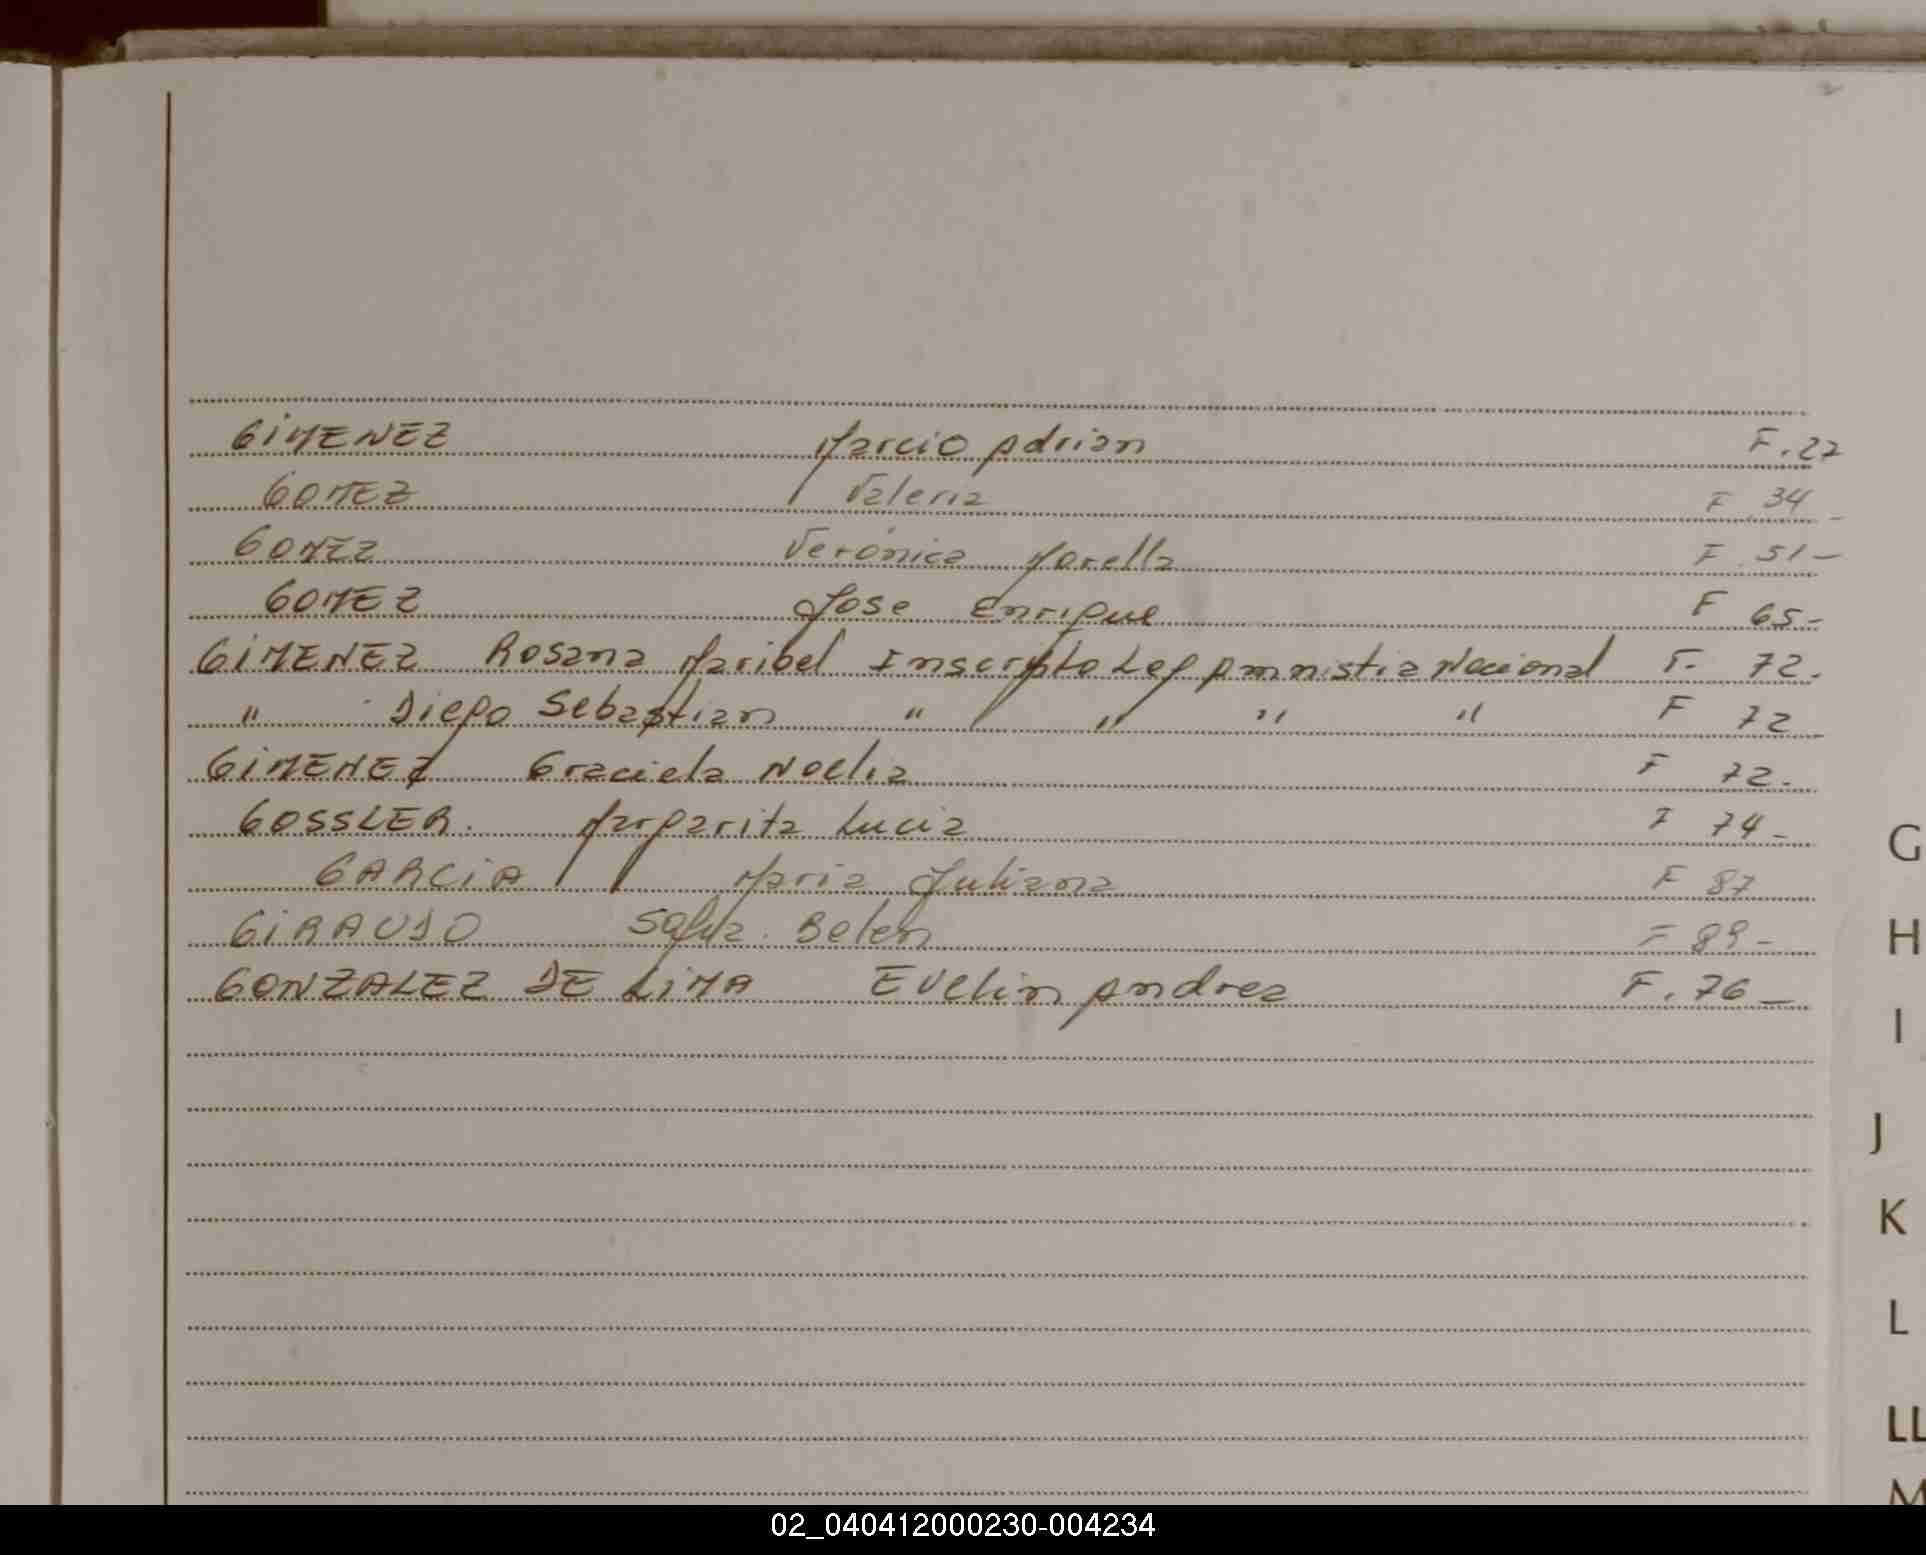 GIMENEZ Marcio Adrian F. 27
GOMEZ Valeria F 34 -
GOMEZ Verónica Morella F. 51 -
GOMEZ Jose Enrique F 65 -
GIMENEZ Rosana Maribel Inscripto Ley Amnistia Nacional F. 72.
" Diego Sebastian " " " " F 72
GIMENEZ Graciela Noelia F 72.
GOSSLER. Margarita Lucia F 74 -
GARCIA Maria Juliana F 87
GIRAUDO Belen F 89 -
GONZALEZ DE LIMA Evelin Andrea F. 76 -
G
H
I
J
K
L
LL
M
02_040412000230-004234